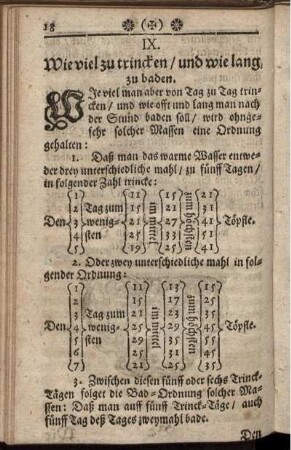 18
IX.
Wie viel zu trincken / und wie lang
zu baden.
WJe viel man aber von Tag zu Tag trin-
cken / und wie offt und lang man nach
der Stund baden soll / wird ohnge-
fehr solcher Massen eine Ordnung
gehalten:
1. Daß man das warme Wasser entwe-
der drey unterschiedliche mahl / zu fünff Tagen /
in folgender Zahl trincke:
1 11 15 21
2 Tag zum 15 21 31
Den 3 wenig- 21 im mittel 27 zum höchsten 41 Töpfle.
4 sten 25 33 51
5 19 25 41
2. Oder zwey unterschiedliche mahl in fol-
gender Ordnung:
1 11 13 15
2 15 23 25
3 Tag zum 21 35
Den 4 wenig- 25 im mittel 35 zum höchsten 45 Töpfle.
5 sten 21 29 35
6 17 25
7 11 13 15
3. Zwischen diesen fünff oder sechs Trinck-
Tägen folget die Bad-Ordnung solcher Mas-
sen: Daß man auff fünff Trinck-Täge / auch
fünff Tag deß Tages zweymahl bade.
Den